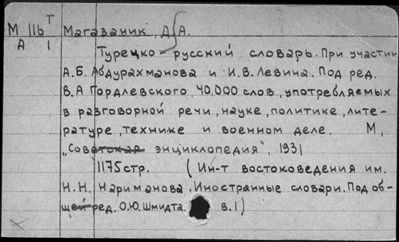 М 11б Т Магазаник, Д.А.
А 1
Турецко-русский словарь. При участии
А.Б. Абдурахманова и И.В. Левина. Под ред.
В.А Гордлевского, 40.000 слов, употребляемых
в разговорной речи, науке, политике, лите-
ратуре, технике и военном деле. М,
"Советская энциклопедия", 1931
1175 стр. (Ин-т востоковедения им.
Н.Н. Нариманова. Иностранные словари. Под об-
щей ред. О.Ю. Шмидта. в.1)